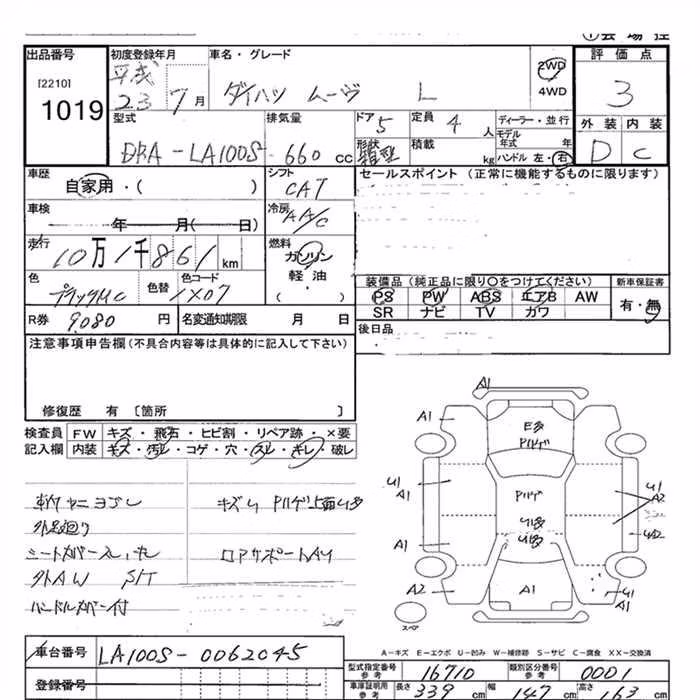 出品番号 初度登録年月 車名・グレード 2WD 評価点
[2210] 平成 4WD
1019 23 7月 ダイハツ ムーヴ L 3
型式 排気量 ドア 5 定員 4人 ディーラー・並行 外装 内装
DBA-LA100S 660cc 形状 箱型 積載 kg モデル年式 年 D C
ハンドル 左・右
車歴 自家用・( ) シフト CAT セールスポイント (正常に機能するものに限ります)
車検 年 月( 日) 冷房 AA/C
走行 10万1千861km 燃料 ガソリン
軽油
( )
色 ブラックMC 色替 色コード 1X07 装備品 (純正品に限り○をつけてください) 新車保証書
PS PW ABS エアB AW 有・無
SR ナビ TV カワ
R券 9080円 名変通知期限 月 日 後日品
注意事項申告欄(不具合内容等は具体的に記入して下さい)
修復歴 有 〔箇所 〕
検査員 FW キズ・飛石・ヒビ割・リペア跡・×要
記入欄 内装 キズ・汚レ・コゲ・穴・スレ・キレ・破レ
シートカバースレ、キレ ロアサポートAU
外AW S/T
ハンドルカバー付
A1
A1
E多
U1
A1
U1
A2
A1
A1
U2
U1
スペア
A-キズ E-エクボ U-凹み W-補修跡 S-サビ C-腐食 XX-交換済
車台番号 LA100S-0062045
登録番号
型式指定番号 参考 16710 類別区分番号 参考 0001
車庫証明用 参考 長さ 339cm 幅 147cm 高さ 163cm